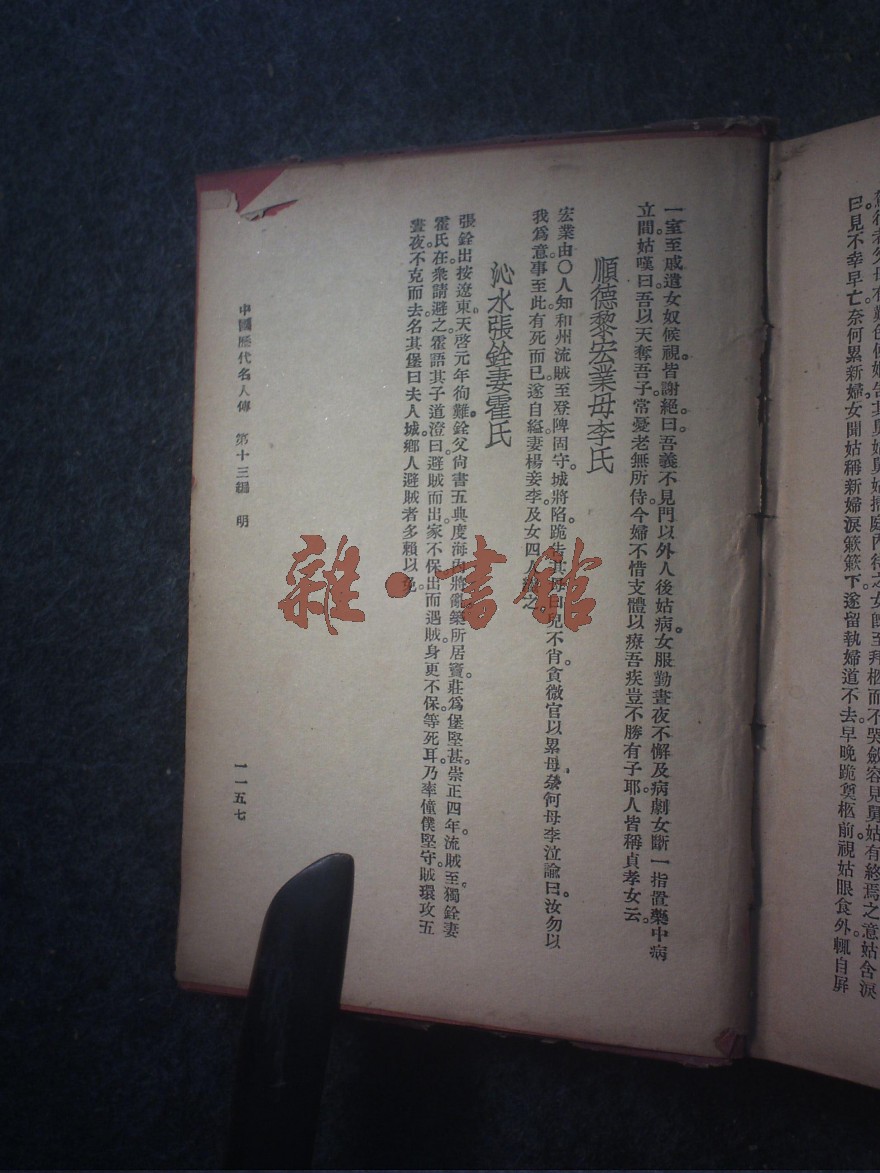 曰見不幸早亡奈何累新婦女聞姑稱新婦淚簌簌下遂留執婦道不去早晚跪奠柩前視姑眼食外輒自屏
一室至戚遣女奴候視皆謝絕曰吾義不見門以外人後姑病女服勤晝夜不懈及病劇女斷一指置藥中病
立間姑嘆曰吾以天奪吾子常憂老無所侍今婦不惜支體以療吾疾豈不勝有子耶人皆稱貞孝女云
順德黎宏業母李氏
宏業由〇人知和州流賊至登陴固守城將陷跪告其母曰兒不肖貪微官以累母奈何母李泣諭曰汝勿以
我爲意事至此有死而已遂自縊妻楊妾李及女四人繼之
沁水張銓妻霍氏
張銓出按遼東天啓元年徇難銓父尙書五典度海內將亂築所居竇莊爲堡堅甚崇正四年流賊至獨銓妻
霍氏在衆請避之霍語其子道澄曰避賊而出家不保出而遇賊身更不保等死耳乃率僮僕堅守賊環攻五
晝夜不克而去名其堡曰夫人城鄉人避賊者多賴以免
中國歷代名人傳 第十三編 明
一一五七
雜·書館